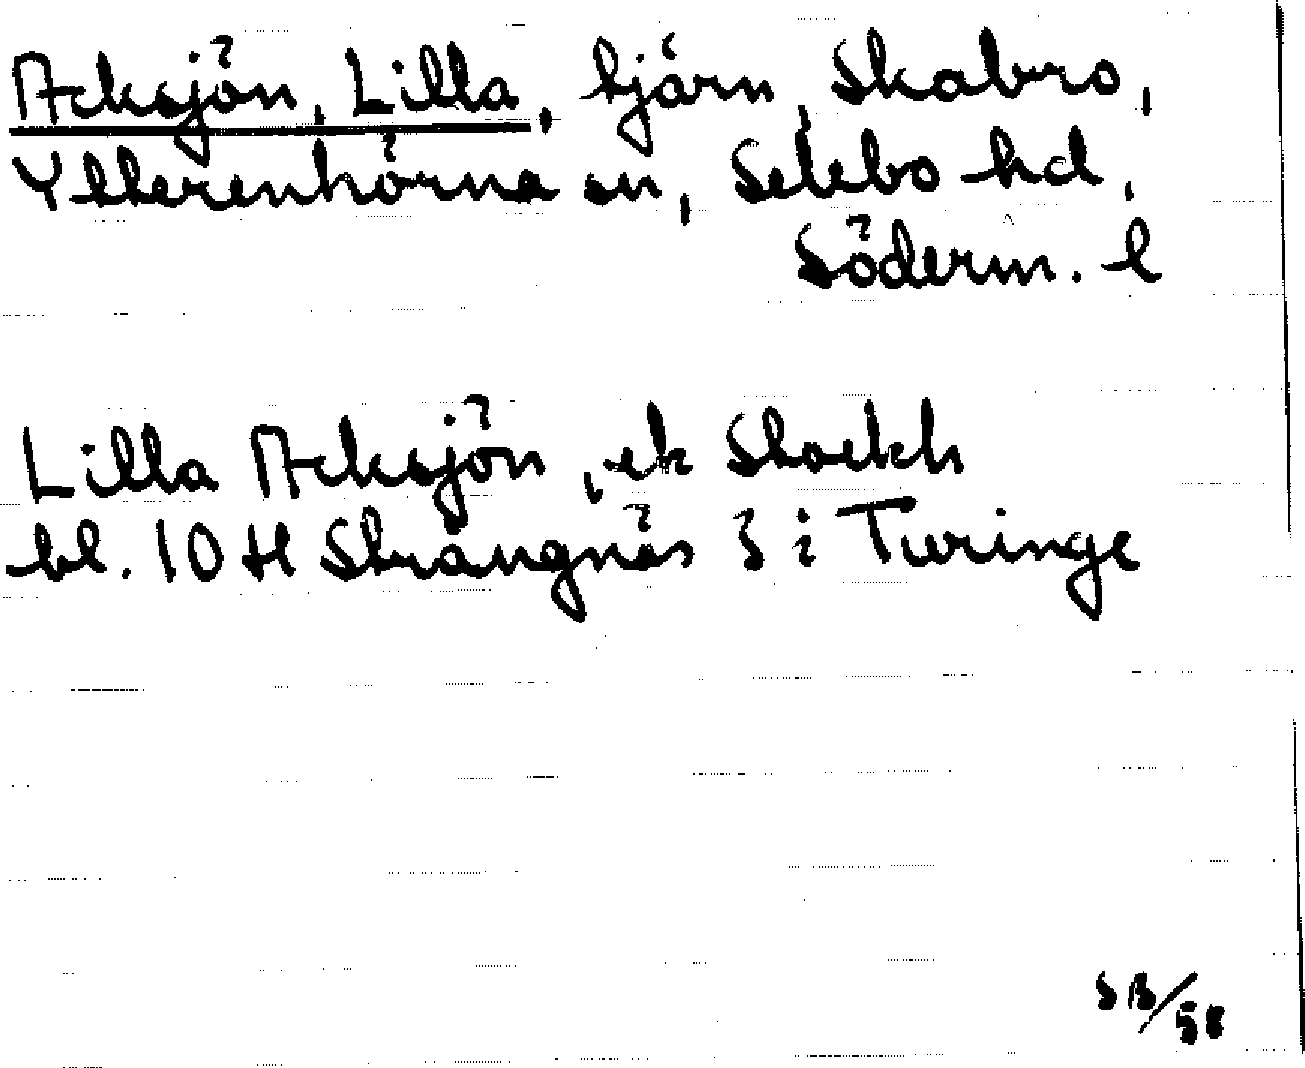 Acksjön, Lilla, tjärn, Skabro,
Ytterenhörna sn, Selebo hd,
Söderm. l
Lilla Acksjön, ek Stockh
bl. 10 H Strängnäs 3 i Turinge
SB/58